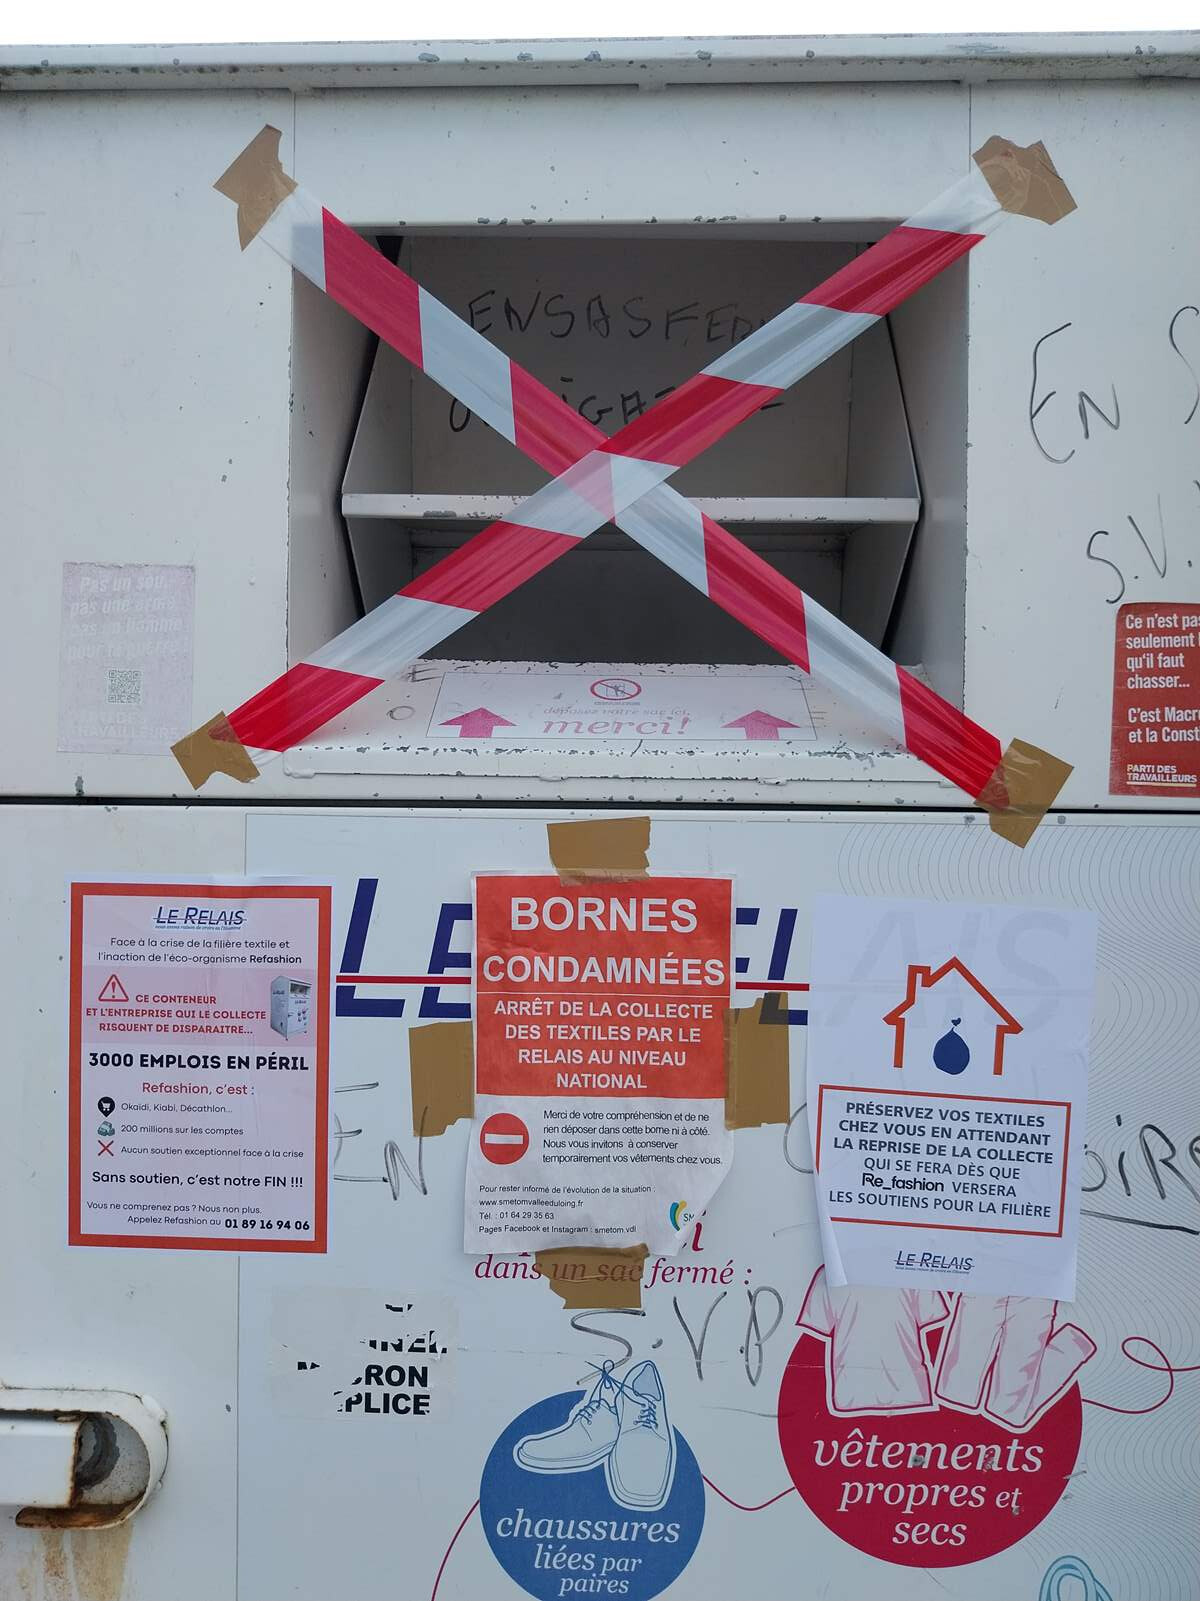 ENSAS FERM
EN S
S.V.
Pas un sou,
pas une arme,
pas un homme
pour la guerre !
TRAVAILLEURS
déposez votre sac ici,
merci!
Ce n'est pas
seulement
qu'il faut
chasser...
C'est Macro
et la Const
PARTI DES
TRAVAILLEURS
LE RELAIS
Face à la crise de la filière textile et
l'inaction de l'éco-organisme Refashion
CE CONTENEUR
ET L'ENTREPRISE QUI LE COLLECTE
RISQUENT DE DISPARAITRE...
3000 EMPLOIS EN PÉRIL
Refashion, c'est :
Okaïdi, Kiabi, Décathlon...
200 millions sur les comptes
Aucun soutien exceptionnel face à la crise
Sans soutien, c'est notre FIN !!!
Vous ne comprenez pas ? Nous non plus.
Appelez Refashion au 01 89 16 94 06
LE RELAIS
BORNES
CONDAMNÉES
ARRÊT DE LA COLLECTE
DES TEXTILES PAR LE
RELAIS AU NIVEAU
NATIONAL
Merci de votre compréhension et de ne
rien déposer dans cette borne ni à côté.
Nous vous invitons à conserver
temporairement vos vêtements chez vous.
Pour rester informé de l'évolution de la situation :
www.smetomvalleeduloing.fr
Tél. : 01 64 29 35 63
Pages Facebook et Instagram : smetom.vdl
PRÉSERVEZ VOS TEXTILES
CHEZ VOUS EN ATTENDANT
LA REPRISE DE LA COLLECTE
QUI SE FERA DÈS QUE
Re_fashion VERSERA
LES SOUTIENS POUR LA FILIÈRE
LE RELAIS
EN
dans un sac fermé :
S.V.P
CRON
PLICE
chaussures
liées par
paires
vêtements
propres et
secs